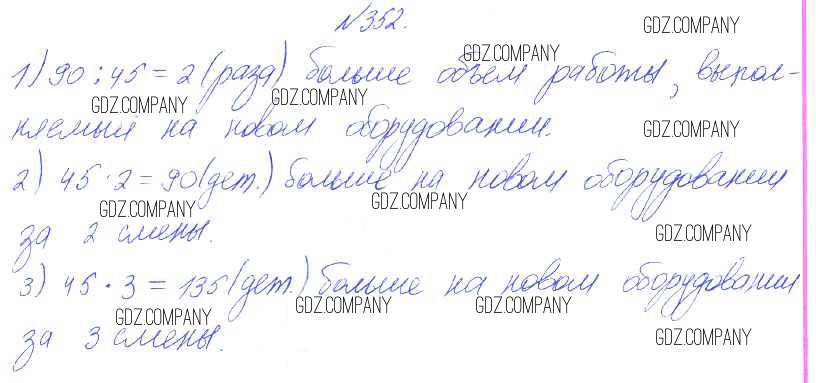 №352. GDZ.COMPANY
GDZ.COMPANY
1) 90 : 45 = 2 (раза) больше объем работы, выпол-
GDZ.COMPANY GDZ.COMPANY
няемый на новом оборудовании. GDZ.COMPANY
2) 45 · 2 = 90 (дет.) больше на новом оборудовании
GDZ.COMPANY GDZ.COMPANY
за 2 смены. GDZ.COMPANY
3) 45 · 3 = 135 (дет.) больше на новом оборудовании
GDZ.COMPANY GDZ.COMPANY GDZ.COMPANY
за 3 смены. GDZ.COMPANY